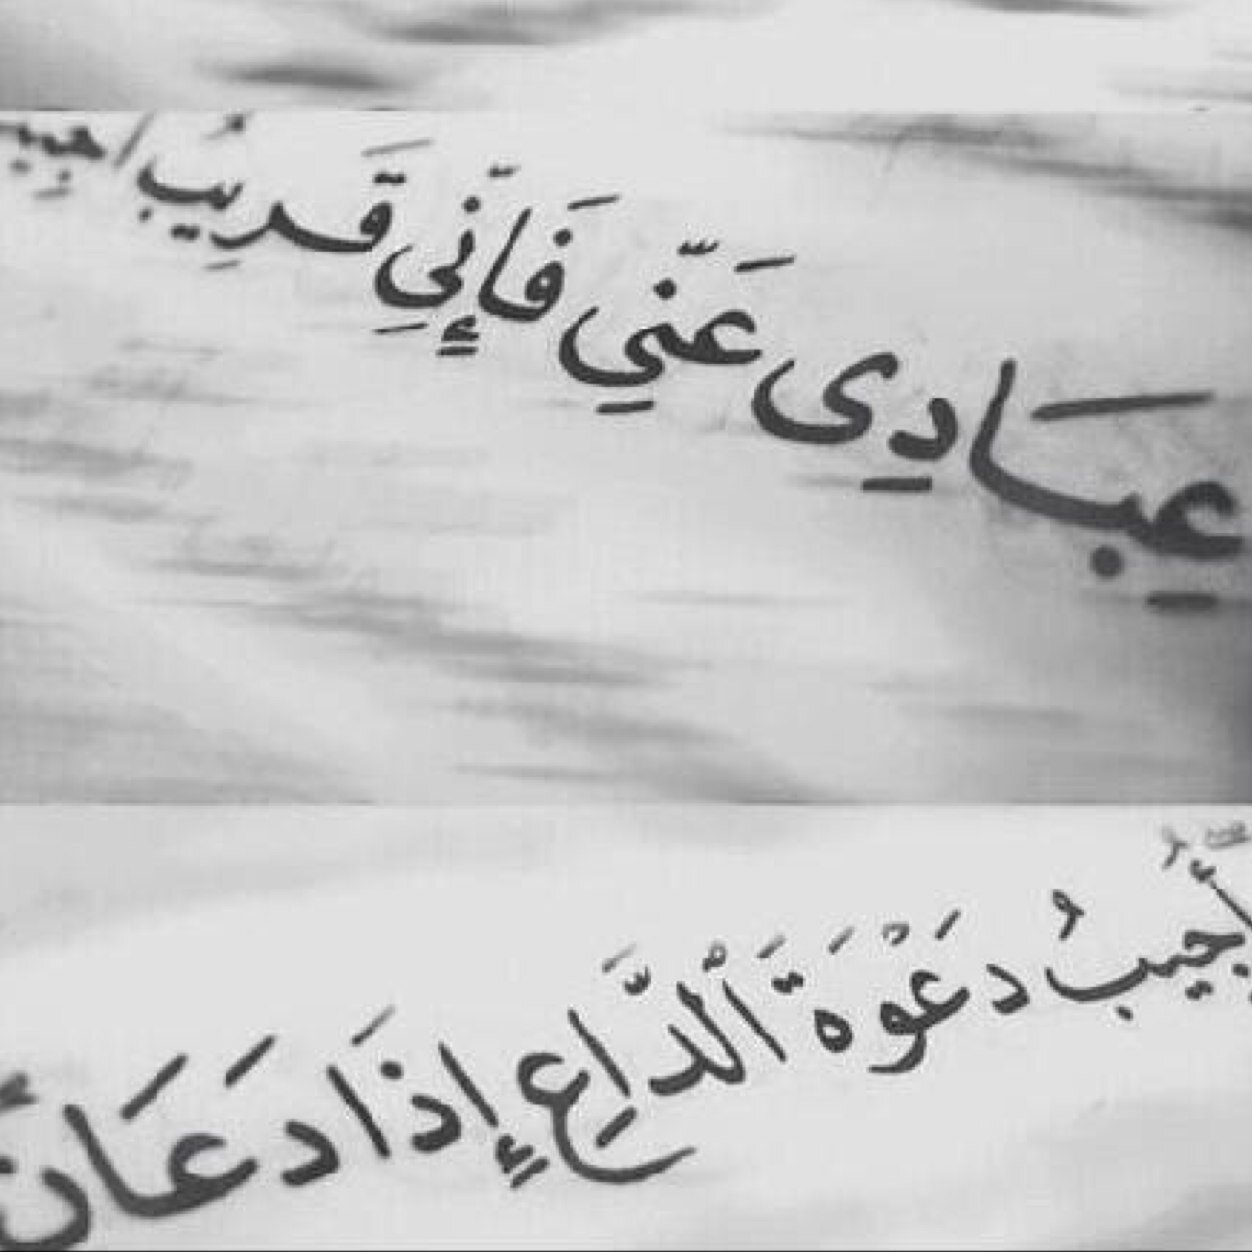 عِبَادِى عَنِّي فَإِنِّي قَرِيبٌ اجيب
أُجِيبُ دَعْوَةَ ٱلدَّاعِ إِذَا دَعَانِ